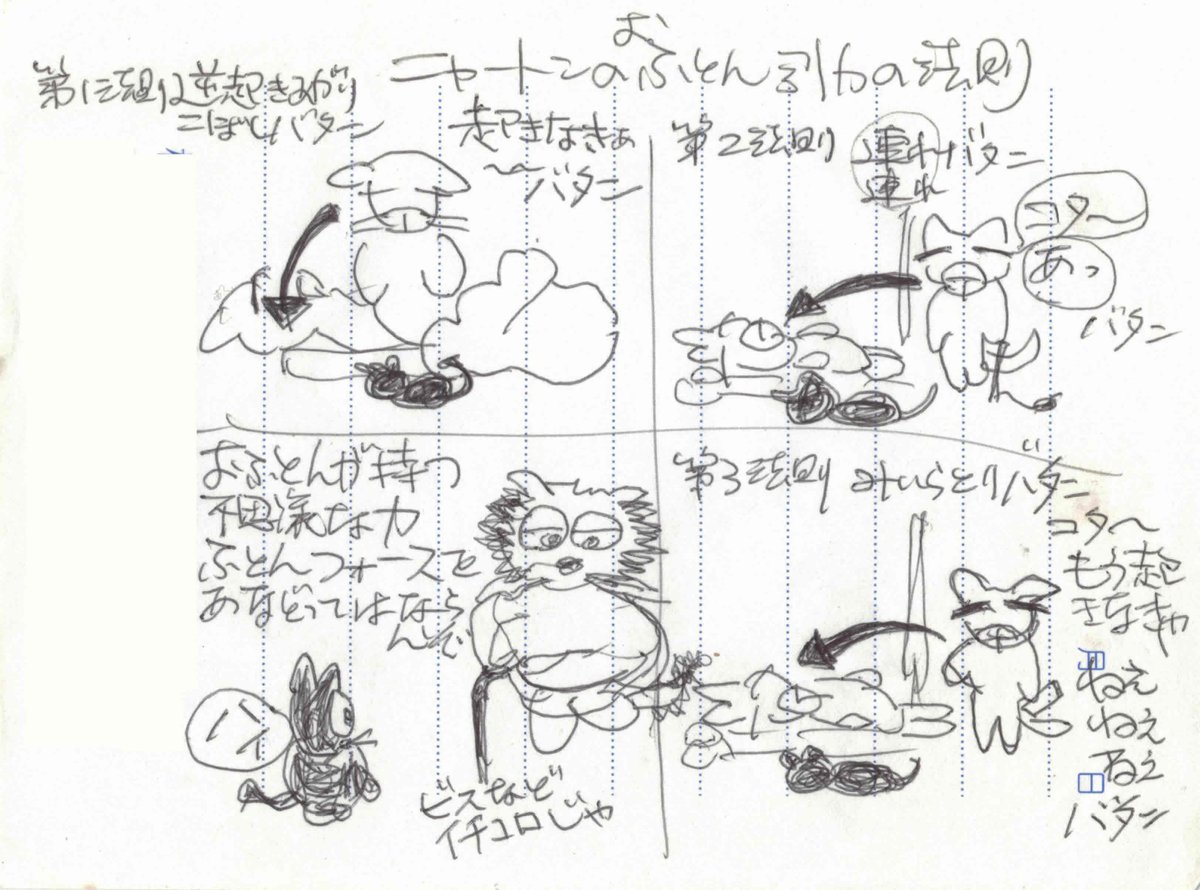 ニャートンのおふとん引力の法則
第1法則は逆起きあがり
こぼしバタン
起きなきぁ
〜〜バタン
第2法則 連れバタン
連れ
コタ〜
あっ
バタン
おふとんが持つ
不思議な力
ふとんフォースを
あなどってはなら
んぞ
ハイ
ビスなど
イチコロじゃ
第3法則 みいらとりバタン
コタ〜
もう起
きなきゃ
ねぇ
ねぇ
ねぇ
バタン
月
日